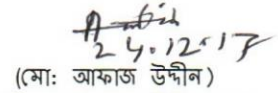 24.12.17
(মো: আফাজ উদ্দীন)